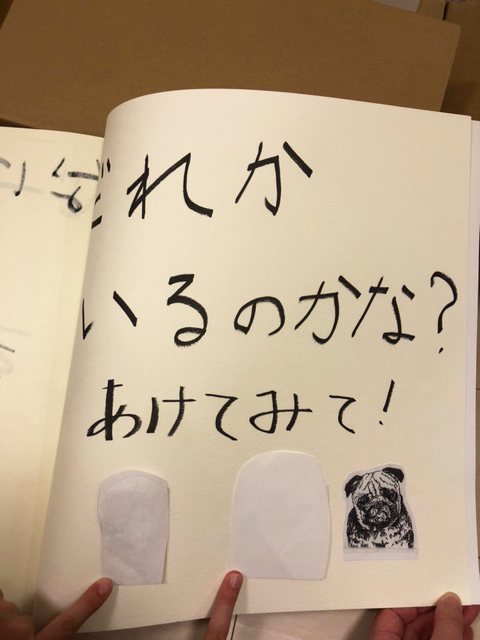 だれか
いるのかな?
あけてみて!